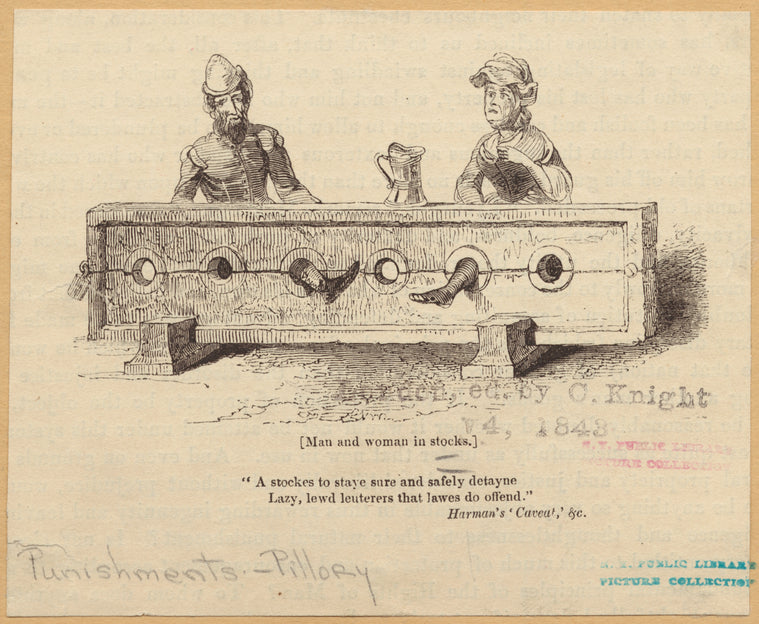 ed. by C. Knight
V4, 1843
[Man and woman in stocks.]
N. Y. PUBLIC LIBRARY
PICTURE COLLECTION
“ A stockes to staye sure and safely detayne
Lazy, lewd leuterers that lawes do offend.”
Harman's ‘ Caveat,’ &c.
Punishments - Pillory
N. Y. PUBLIC LIBRARY
PICTURE COLLECTION